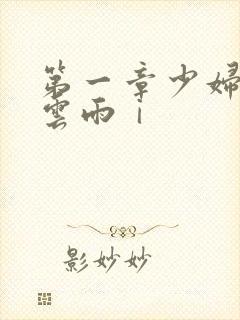 第一章少婦
雲雨｜
影妙妙